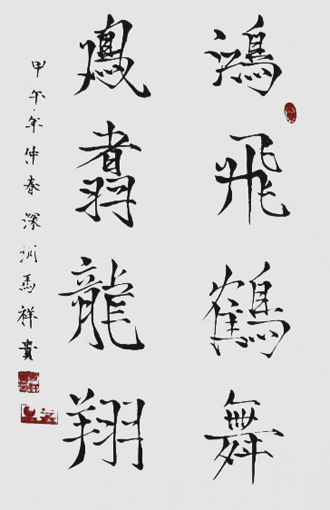 鴻飛鶴舞
鳳翥龍翔
甲午年仲春深州馬祥貴